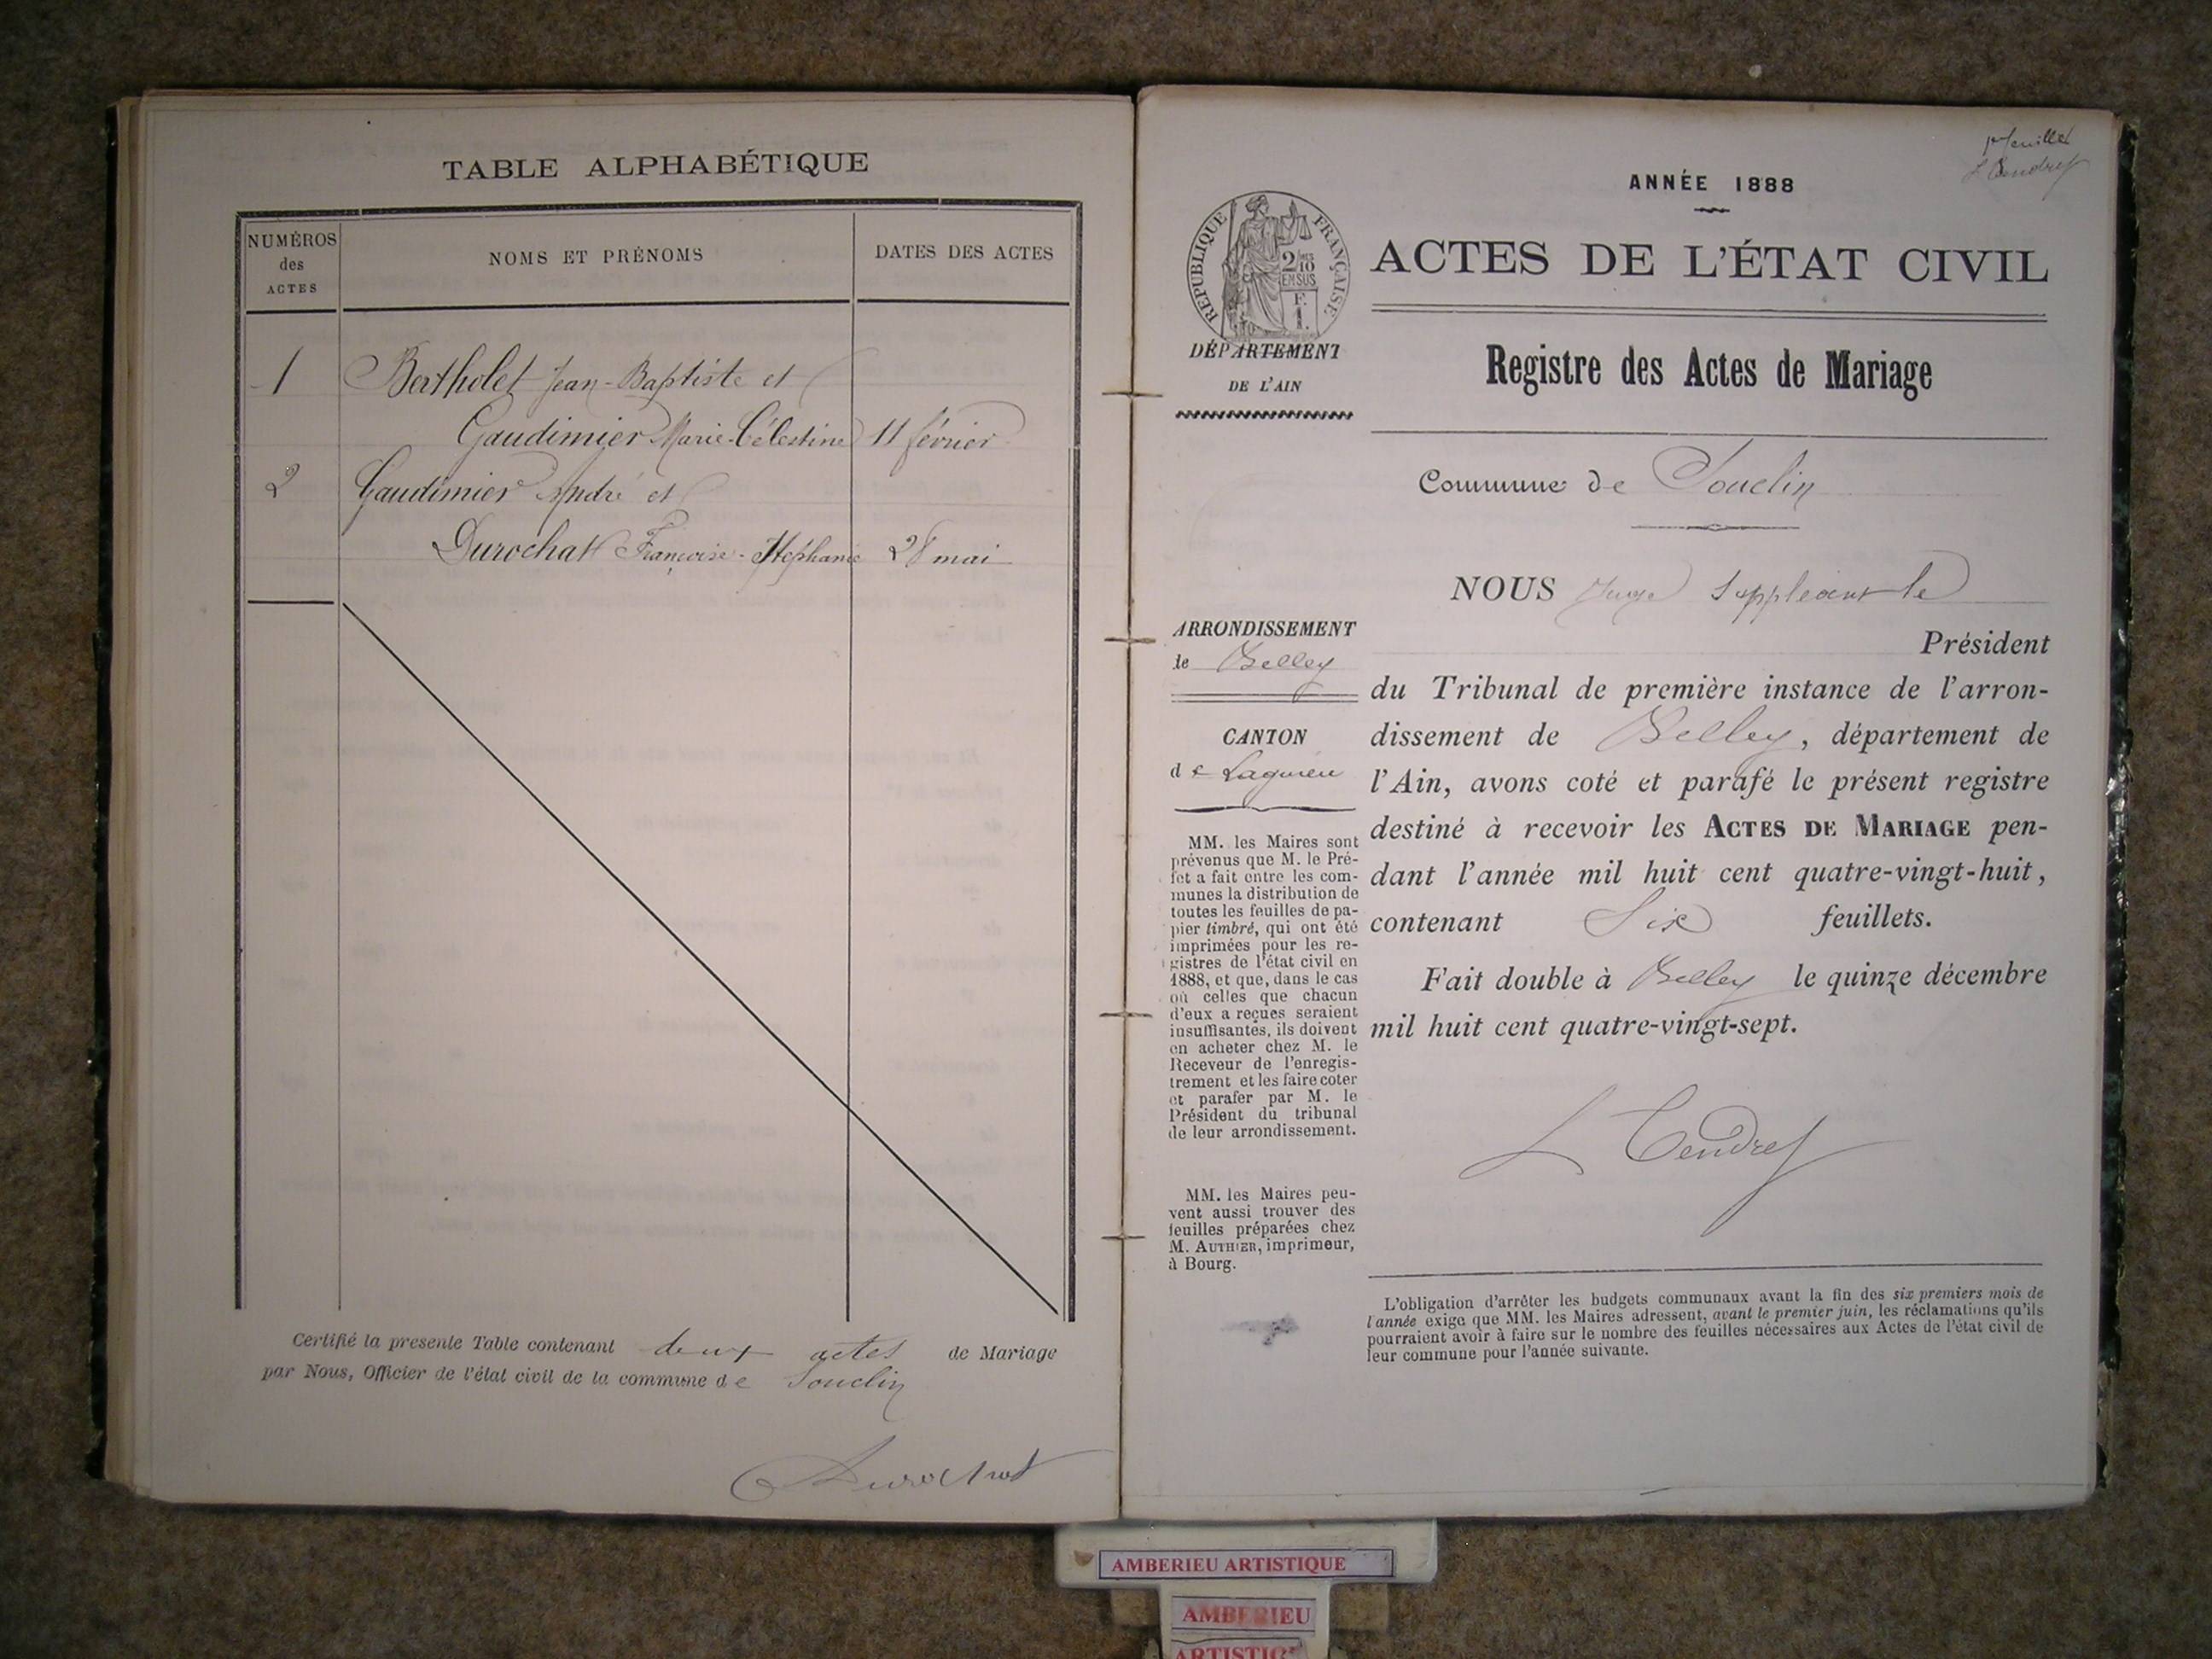 TABLE ALPHABÉTIQUE
NUMÉROS
des
ACTES
NOMS ET PRÉNOMS
DATES DES ACTES
1 Bertholet Jean-Baptiste et
Gaudimier Marie-Célestine 11 février
2 Gaudimier André et
Durochat Françoise-Stéphanie 28 mai
Certifié la presente Table contenant deux actes de Mariage
par Nous, Officier de l'état civil de la commune de Souclin
Durochat
1er feuillet
L Tendret
ANNÉE 1888
RÉPUBLIQUE FRANÇAISE
2/10
EN SUS
F.
1.
ACTES DE L'ÉTAT CIVIL
DÉPARTEMENT
DE L'AIN
Registre des Actes de Mariage
Commune de Souclin
NOUS Juge Suppléant le
Président
du Tribunal de première instance de l'arron-
dissement de Belley, département de
l'Ain, avons coté et parafé le présent registre
destiné à recevoir les ACTES DE MARIAGE pen-
dant l'année mil huit cent quatre-vingt-huit,
contenant Six feuillets.
Fait double à Belley le quinze décembre
mil huit cent quatre-vingt-sept.
L Tendret
ARRONDISSEMENT
de Belley
CANTON
de Lagnieu
MM. les Maires sont
prévenus que M. le Pré-
fet a fait entre les com-
munes la distribution de
toutes les feuilles de pa-
pier timbré, qui ont été
imprimées pour les re-
gistres de l'état civil en
1888, et que, dans le cas
où celles que chacun
d'eux a reçues seraient
insuffisantes, ils doivent
en acheter chez M. le
Receveur de l'enregis-
trement et les faire coter
et parafer par M. le
Président du tribunal
de leur arrondissement.
MM. les Maires peu-
vent aussi trouver des
feuilles préparées chez
M. AUTHIER, imprimeur,
à Bourg.
L'obligation d'arrêter les budgets communaux avant la fin des six premiers mois de
l'année exige que MM. les Maires adressent, avant le premier juin, les réclamations qu'ils
pourraient avoir à faire sur le nombre des feuilles nécessaires aux Actes de l'état civil de
leur commune pour l'année suivante.
AMBERIEU ARTISTIQUE
AMBERIEU
ARTISTIQ